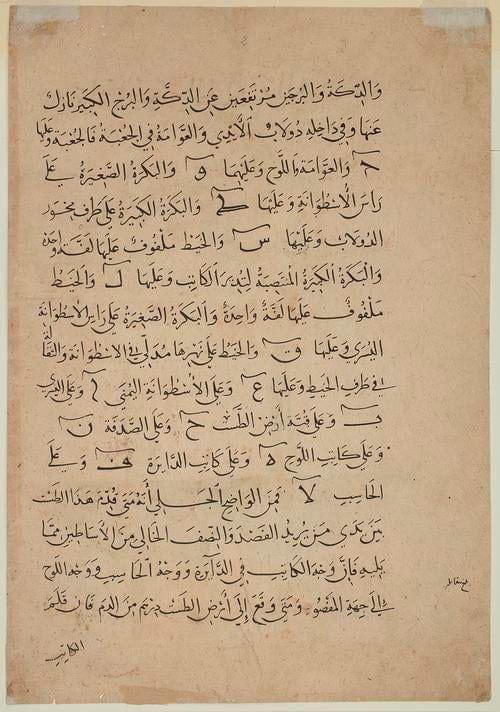 والدكة والبرجين مرتفعين عن الدكة والبرج الكبير نازك
عنها وفي داخله دولاب الأيدي والعوامة في الجعبة فالجعبة وعليها
م والعوامة واللوح وعليهما و والبكرة الصغيرة على
رأس الأسطوانة وعليها ط والبكرة الكبيرة على طرف محور
الدولاب وعليها س والخيط ملفوف عليها لفة واحدة
والبكرة الكبيرة المنتصبة لتدير الكاتب وعليها ل والخيط
ملفوف عليها لفة واحدة والبكرة الصغيرة على رأس الأسطوانة
اليسرى وعليها ق والخيط على نهرها مدلى في الأسطوانة والثقالة
في طرف الخيط وعليها ع وعلى الأسطوانة اليمنى ا وعلى اليسرى
ب وعلى قبة أرض الطست ح وعلى الصدفة ن
وعلى كاتب اللوح ه وعلى كاتب الدايرة ف وعلى
الحاسب لا فمن الواضح الجلي أنه متى قدم هذا الطست
بين يدي من يريد الفصد والنصف الخالي من الأساطين مما
يليه فإن وجه الكاتب في الدايرة ووجه الحاسب ووجه اللوح
إلى جهة المفصود ومتى وقع إلى أرض الطست درهم من الدم فإن قلم
الكاتب